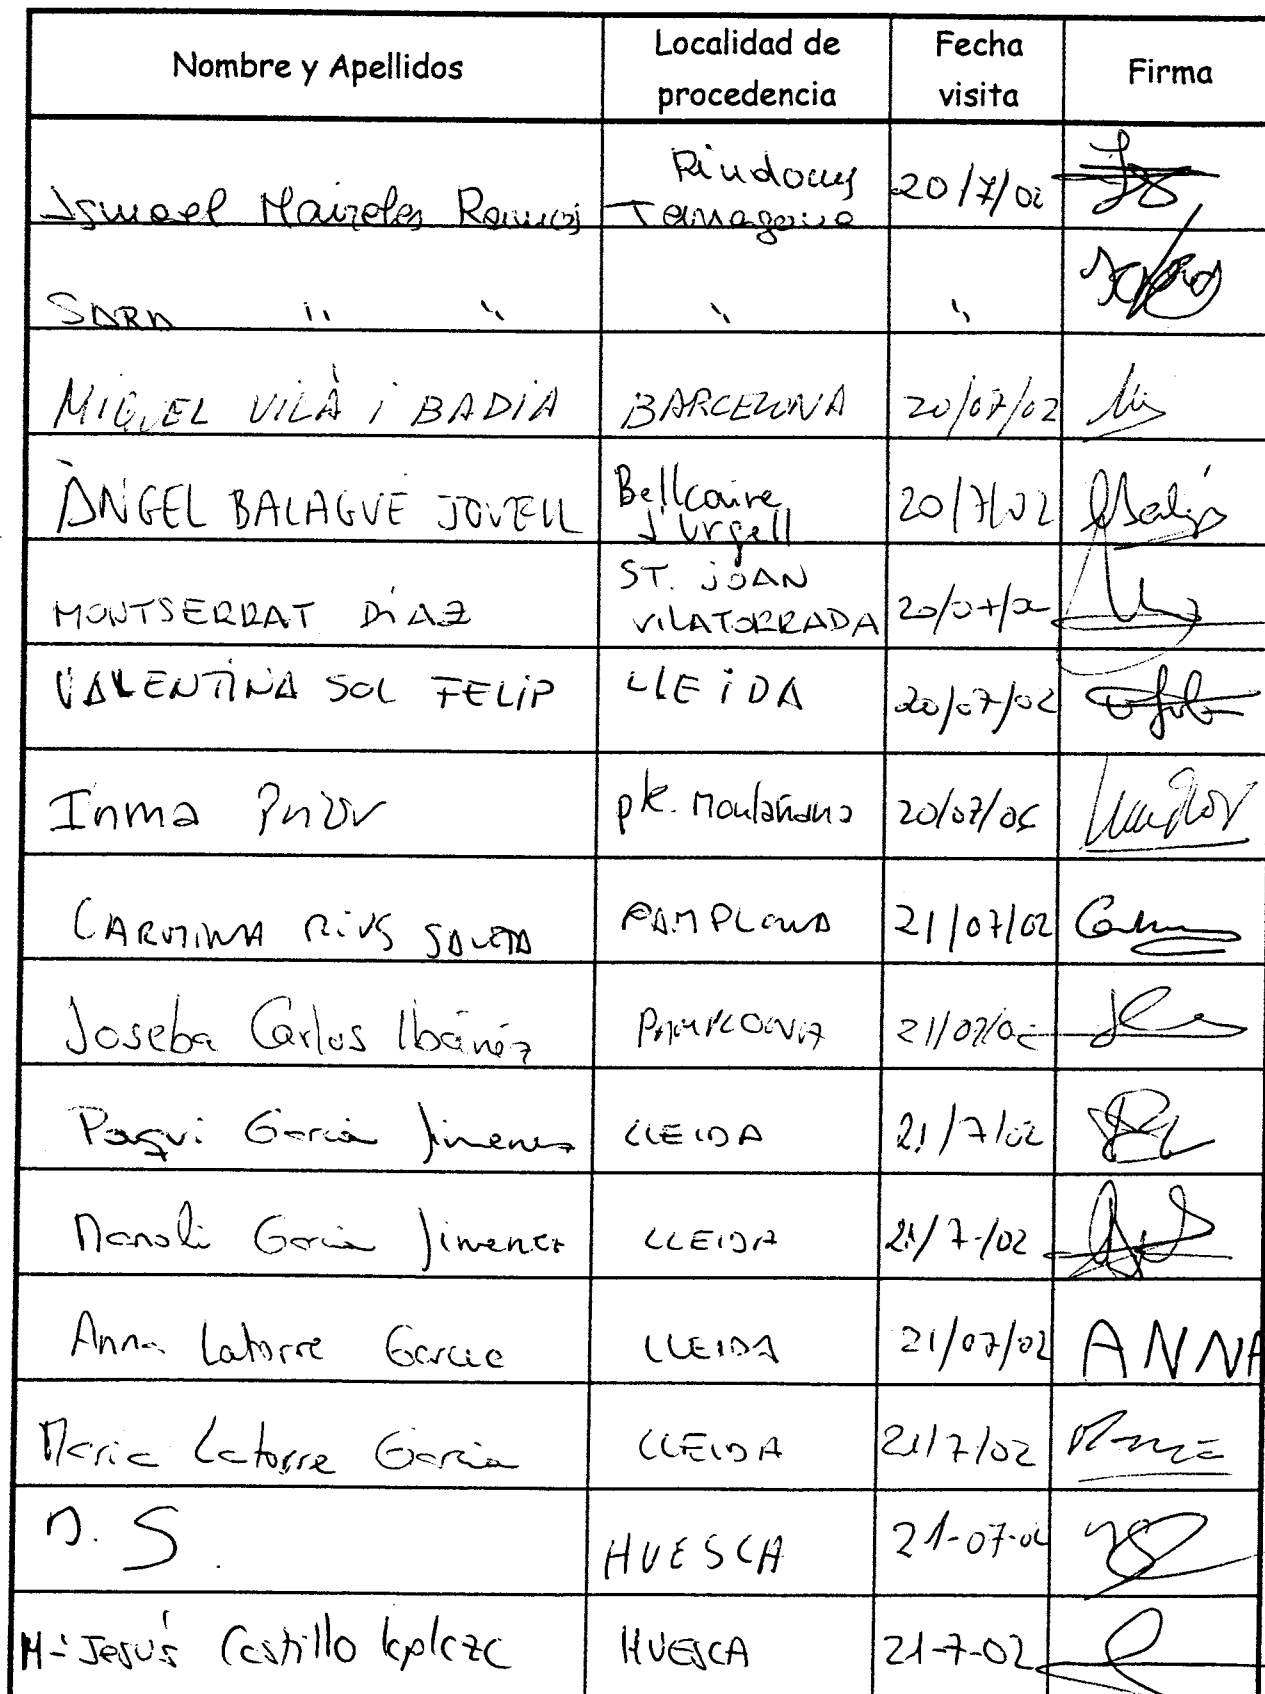 Nombre y Apellidos
Localidad de
procedencia
Fecha
visita
Firma
Riudoms
Ismael Maireles Ramos Tarragona 20/7/02
SARA " " " "
MIGUEL VILÀ i BADIA BARCELONA 20/07/02
ÀNGEL BALAGUÉ JOVELL Bellcaire
d'Urgell 20/7/02
MONTSERRAT DíAZ ST. JOAN
VILATORRADA 20/07/02
VALENTINA SOL FELIP LLEIDA 20/07/02
Inma Prior pte. Montañana 20/07/02
CARMINA RIUS PAMPLONA 21/07/02
Joseba Carlos Ibáñez PAMPLONA 21/07/02
Paqui Garcia Jimenez LLEIDA 21/7/02
Manoli Garcia Jimenez LLEIDA 21/7-/02
Anna Latorre Garcia LLEIDA 21/07/02 ANNA
Maria Latorre Garcia LLEIDA 21/7/02 Maria
S. HUESCA 21-07-02
Mª Jesús Castillo HUESCA 21-7-02